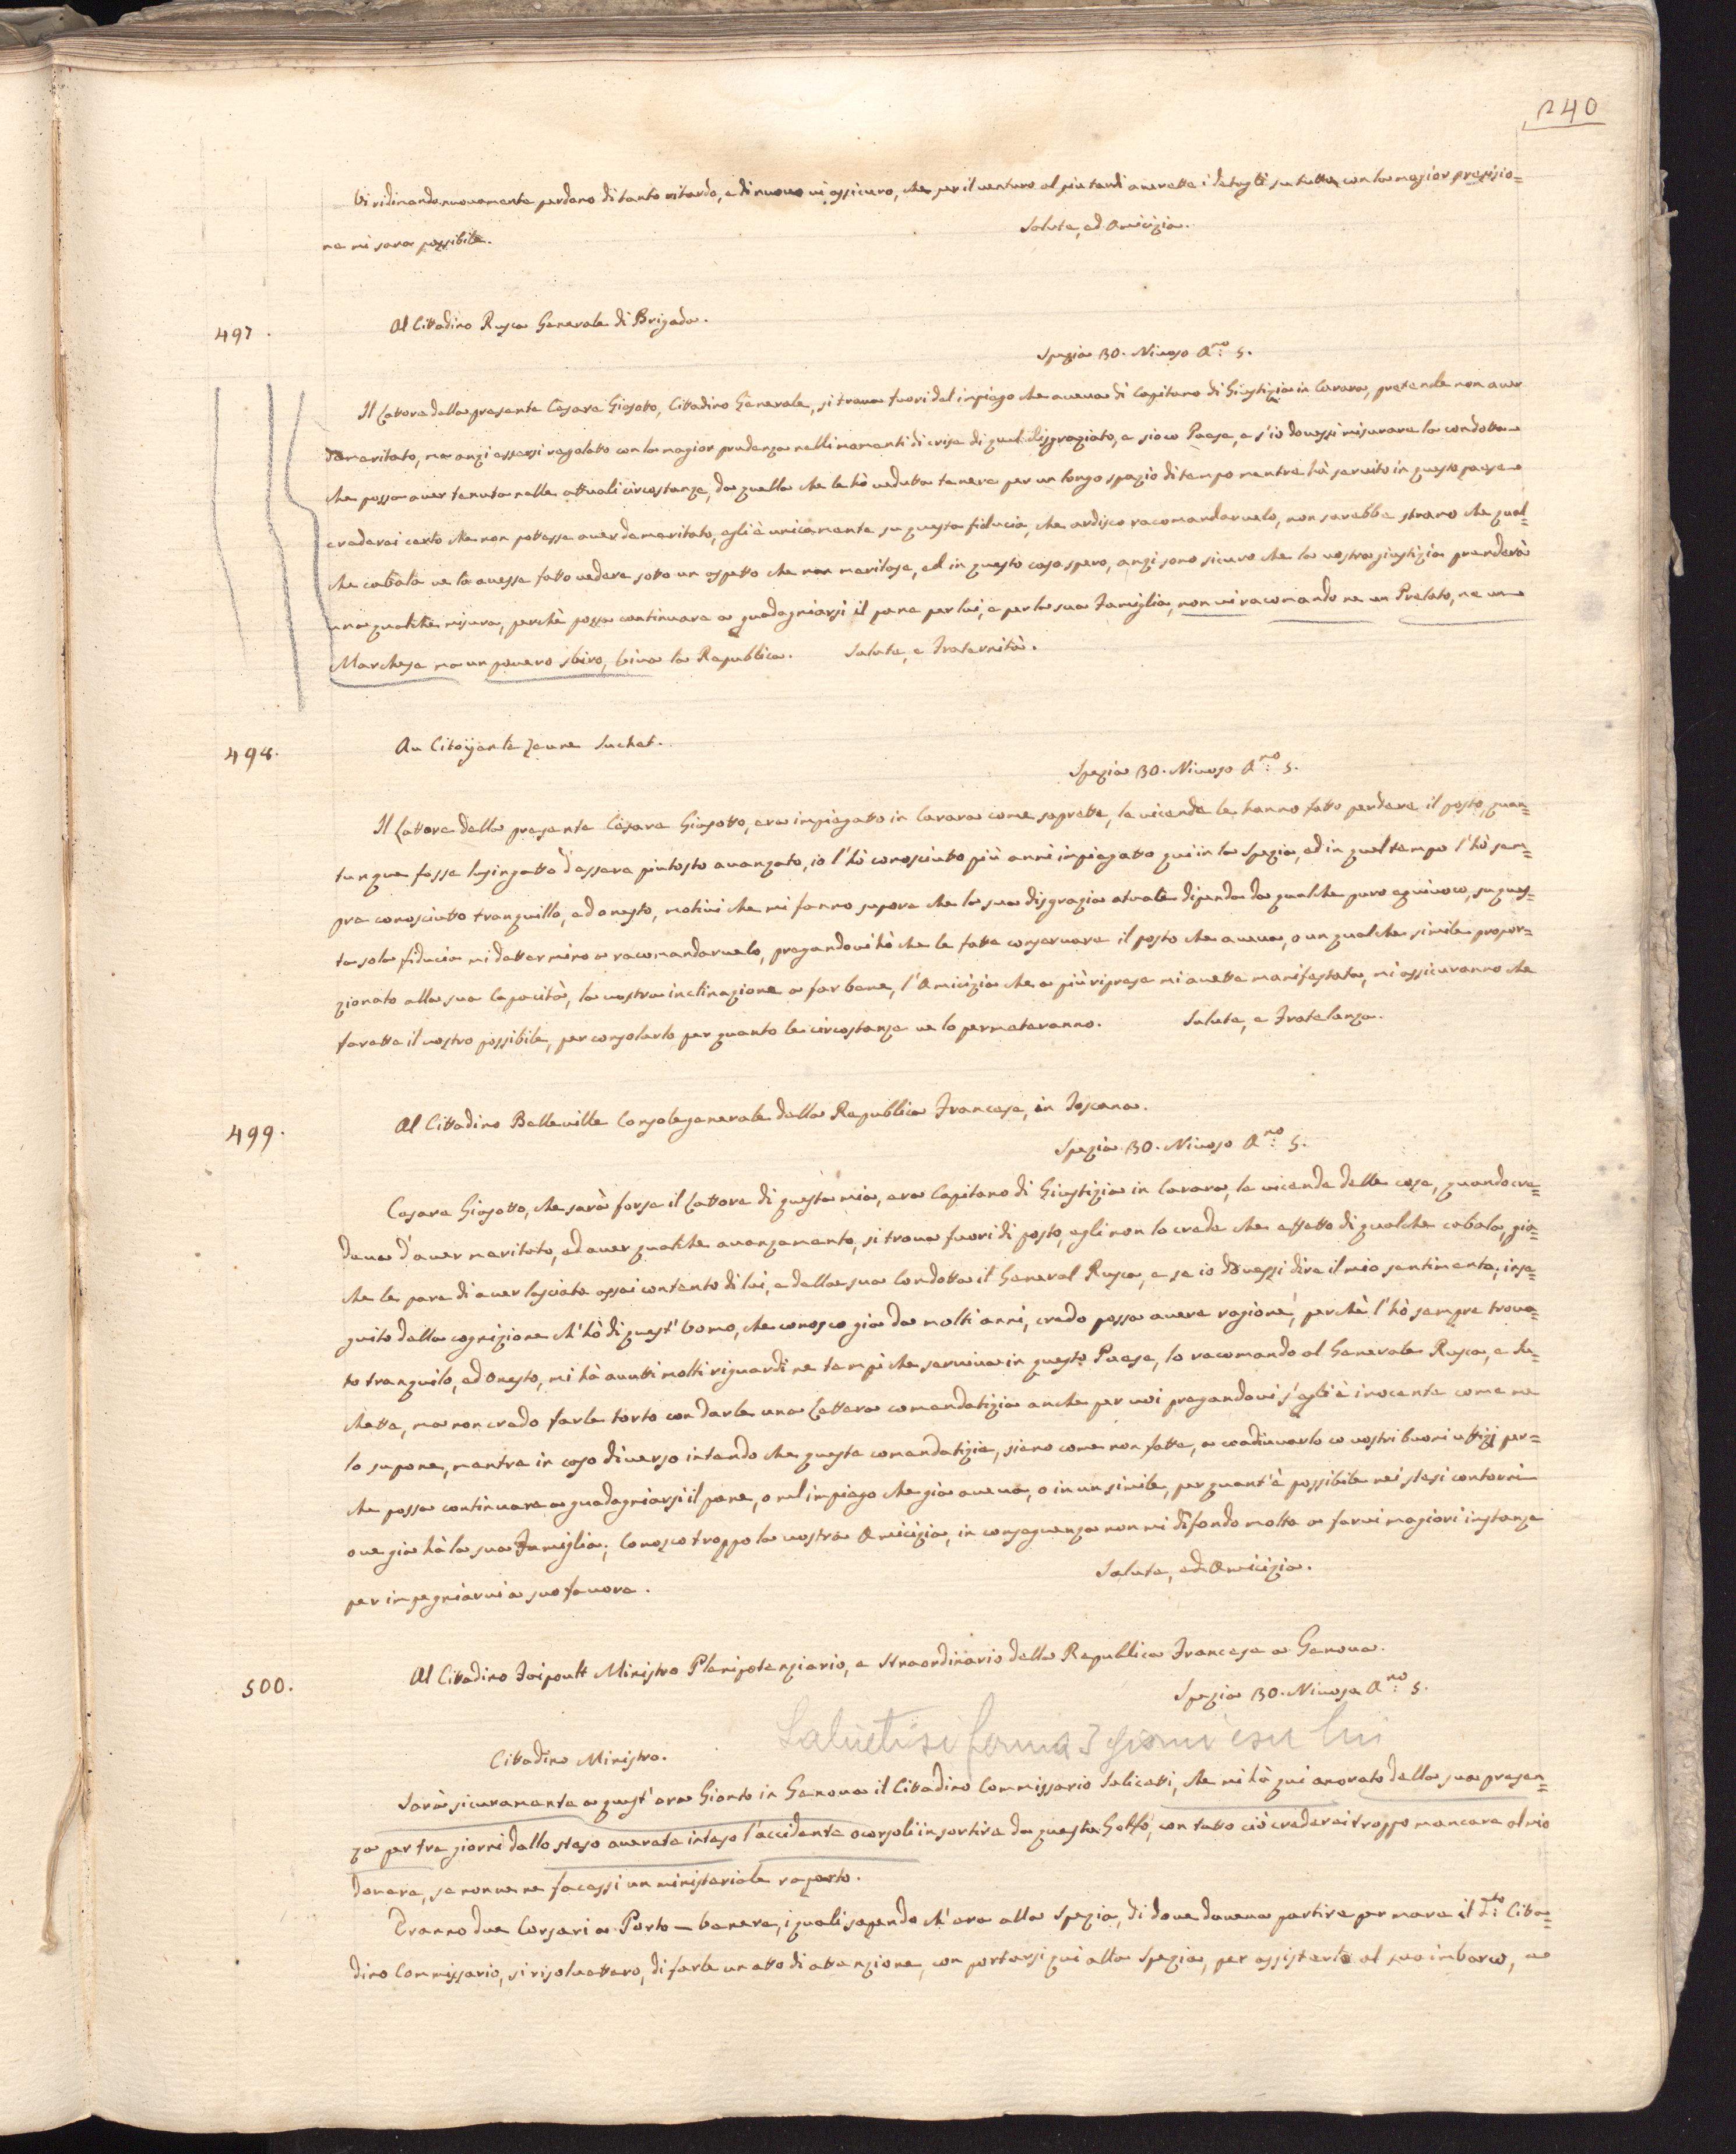 240
Vi ridimando nuovamente perdono di tanto ritardo, e di nuovo vi assicuro, che per il venturo al più tardi averette i detagli su tutto con la magior precisio=
ne mi sara possibile. Salute, ed Amicizia.
497. Al Cittadino Rusca Generale di Brigada.
Spezia 30. Nivoso A.no 5.
Il Lattore della presente Cesare Giosotto, Cittadino Generale, si trova fuori del impiego che aveva di Capitano di Giustizia in Carara, pretende non aver
demeritato, ma anzi essersi regolatto con la magior prudenza nelli momenti di crise di quel disgraziato, e sioco Paese, e s'io dovessi misurare la condotta
che possa aver tenuta nelle attuali circostanze, da quella che le hò veduta tenere per un longo spazio di tempo mentre hà servito in questo paese
crederei certo che non potesse aver demeritato, egli è unicamente su questa fiducia, che ardisco racomandarvelo, non sarebbe strano che qual=
che cabala ve lo avesse fatto vedere sotto un aspetto che non meritase, ed in questo caso spero, anzi sono sicuro che la vostra giustizia prenderà
una qualche misura, perchè possa continuare a guadagniarsi il pane per lui, e per la sua Famiglia, non vi racomando ne un Prelato, ne un
Marchese ma un povero sbiro, viva la Republica. Salute, e Fraternità.
498. Au Citoÿen le Jeune Suchet.
Spezia 30. Nivoso A.no 5.
Il Lattore della presente Cesare Giosotto, era impiegatto in Carara come saprette, le vicende le hanno fatto perdere il posto, quan=
tunque fosse lusingatto d'essere piutosto avanzato, io l'hò conosciuto più anni impiegatto qui in la Spezia, ed in quel tempo l'hò sem=
pre conosciutto tranquillo, ed onesto, motivi che mi fanno supore che la sua disgrazia atuale dipenda da qualche puro equivoco, su ques=
ta sola fiducia mi dettermino a racomandarvelo, pregandovi hò che le fatte conservare il posto che aveva, o un qualche simile propor=
zionato alla sua Capacità, la vostra inclinazione a far bene, l'Amicizia che a più riprese mi avette manifestata, mi assicuranno che
farette il vostro possibile, per consolarlo per quanto le circostanze ve lo permeteranno. Salute, e Fratelanza.
499. Al Cittadino Belleville Consolegenerale della Republica Francese, in Toscana.
Spezia 30. Nivoso A.no 5.
Cesare Giosotto, che sarà forse il Lattore di questa mia, era Capitano di Giustizia in Carara, le vicende delle cose, quando cre=
deva d'aver meritato, ed aver qualche avanzamento, si trova fuori di posto, egli non lo crede che effetto di qualche cabala, già
che le pare di aver lasciato assai contento di lui, e della sua Condotta il General Rusca, e se io dovessi dire il mio sentimento, inse=
guito della cognizione ch'hò di quest'Uomo, che conosco già da molti anni, credo possa avere ragione, perchè l'hò sempre trova=
to tranquilo, ed onesto, mi hà avutti molti riguardi ne tempi che serviva in questo Paese, lo racomando al Generale Rusca, e Su=
chette, ma non credo farle torto con darle una Lettera comandatizia anche per voi pregandovi s'egli è inocente come me
lo supone, mentre in caso diverso intendo che queste comandatizie, sieno come non fatte, a coadiuvarlo co vostri buoni uffizj per=
che possa continuare a guadagniarsi il pane, o nel impiego che già aveva, o in un simile, per quant'è possibile nei stesi contorni
ove già hà la sua Famiglia. Conosco troppo la vostra Amicizia, in conseguenza non mi difondo molto a farvi magiori instanze
per impegniarvi a suo favore. Salute, ed Amicizia.
500. Al Cittadino Faipoult Ministro Plenipotenziario, e straordinario della Republica Francese a Genova.
Spezia 30. Nivoso A.no 5.
Salicetti si ferma 3 giorni
Cittadino Ministro.
Sarà sicuramente a quest'ora Gionto in Genova il Cittadino Commissario Salicetti, che mi hà qui onorato della sua presen=
za per tre giorni dallo steso averete inteso l'accidente ocorsoli in sortire da questo Golfo, con tutto ciò crederei troppo mancare al mio
dovere, se non ve ne facessi un ministeriale raporto.
Eranno due Corsari a Porto-Venere, i quali sapendo ch'era alla Spezia, di dove doveva partire per mare il d.to Citta=
dino Commissario, si risolvettero, di farle un atto di attenzione, con portarsi qui alla Spezia, per assisterlo al suo imbarco, a